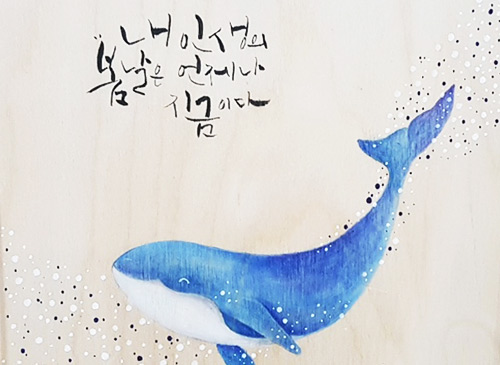 내 인생의
"봄날은 언제나
지금이다